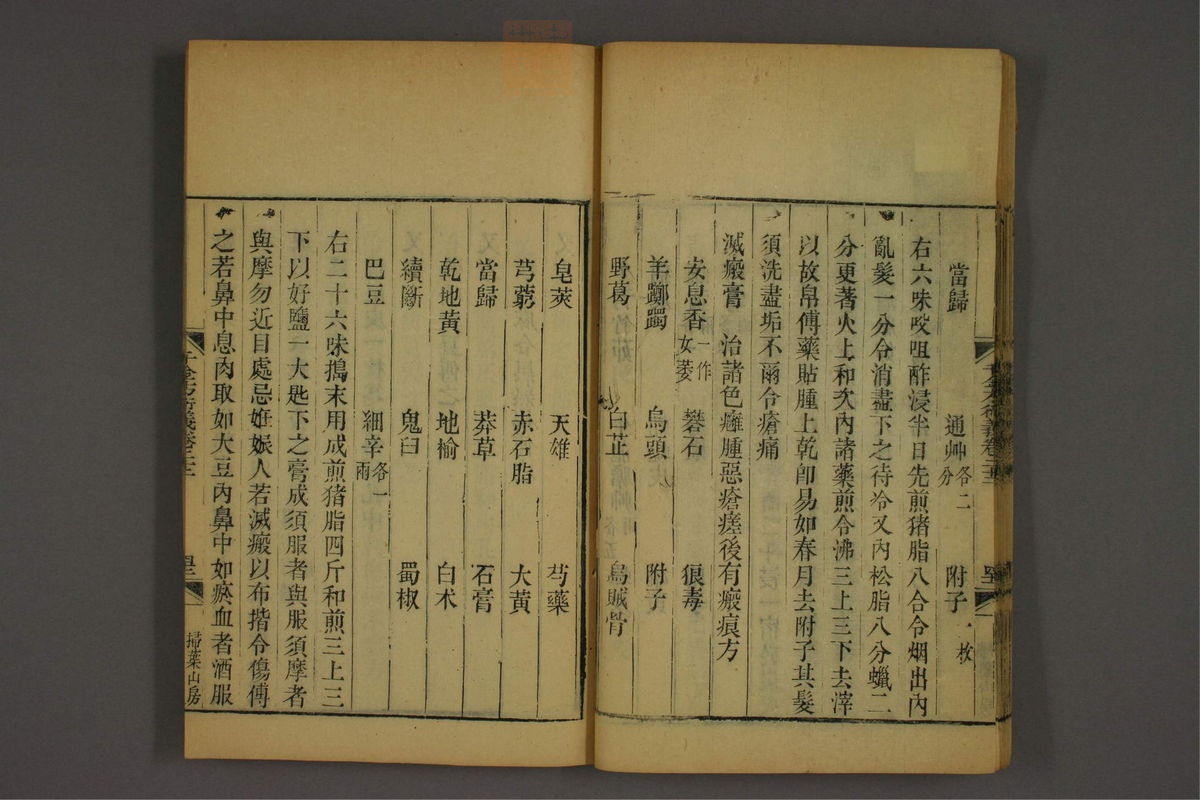 當歸 通艸各二分 附子一枚
右六味㕮咀酢浸半日先煎猪脂八合令烟出內
亂髮一分令消盡下之待冷又內松脂八分蠟二
分更著火上和次內諸藥煎令沸三上三下去滓
以故帛傅藥貼腫上乾卽易如春月去附子其髮
須洗盡垢不爾令瘡痛
滅瘢膏 治諸色癰腫惡瘡瘥後有瘢痕方
安息香一作女萎 礬石 狼毒
羊躑躅 烏頭 附子
野葛 白芷 烏賊骨
皂莢 天雄 芍藥
芎藭 赤石脂 大黃
當歸 莽草 石膏
乾地黃 地榆 白朮
續斷 鬼臼 蜀椒
巴豆 細辛各一兩
右二十六味搗末用成煎猪脂四斤和煎三上三
下以好鹽一大匙下之膏成須服者與服須摩者
與摩勿近目處忌妊娠人若滅瘢以布揩令傷傅
之若鼻中息肉取如大豆內鼻中如瘀血者酒服
掃葉山房